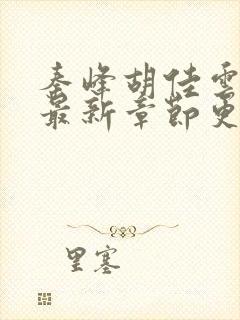 秦峰胡佳雲
最新章節更
里塞